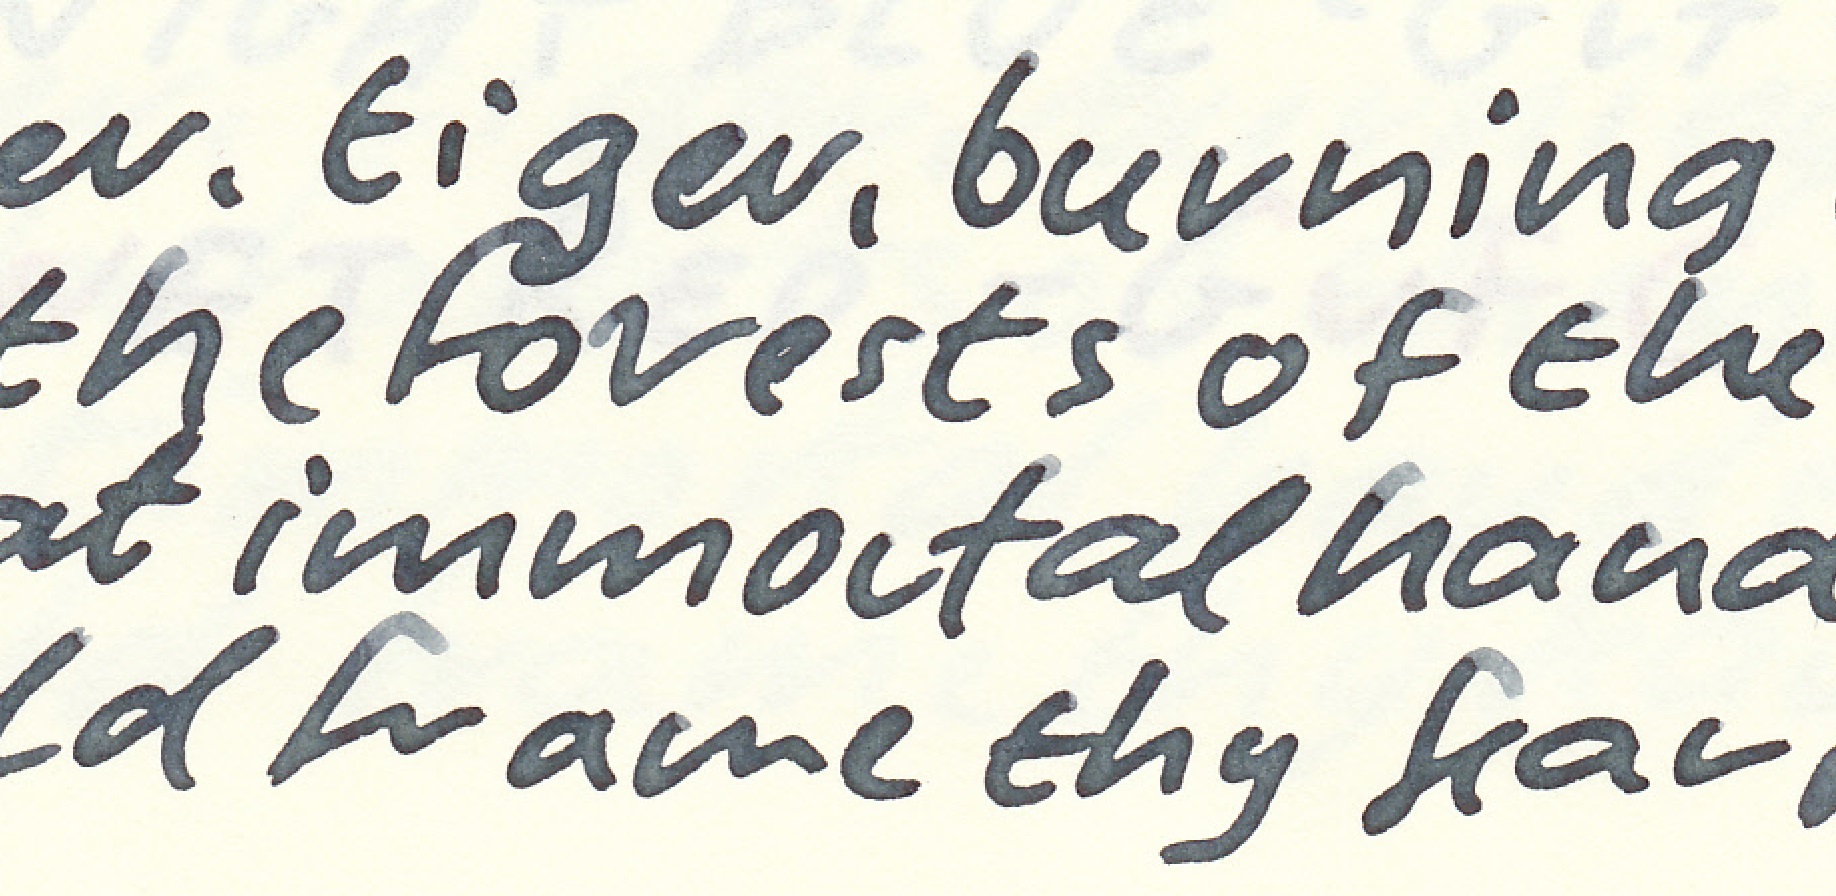 er. tiger, burning
the forests of the
at immortal hand
ld frame thy fear